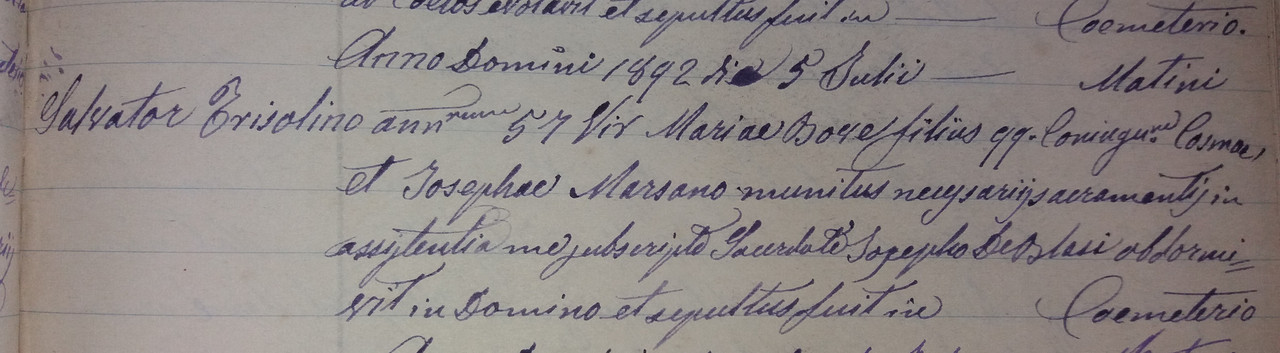 ad Coelos evolavit et sepultus fuit in — Coemeterio.
Anno Domini 1892 die 5 Julii — Matini
Salvator Trisolino annorum 57 Vir Mariae Bove filius qq. Coniugum Cosmae,
et Josephae Marsano munitus necessariis sacramentis in
assistentia me subscripto Sacerdote Josepho De Blasi obdormi=
vit in Domino et sepultus fuit in Coemeterio